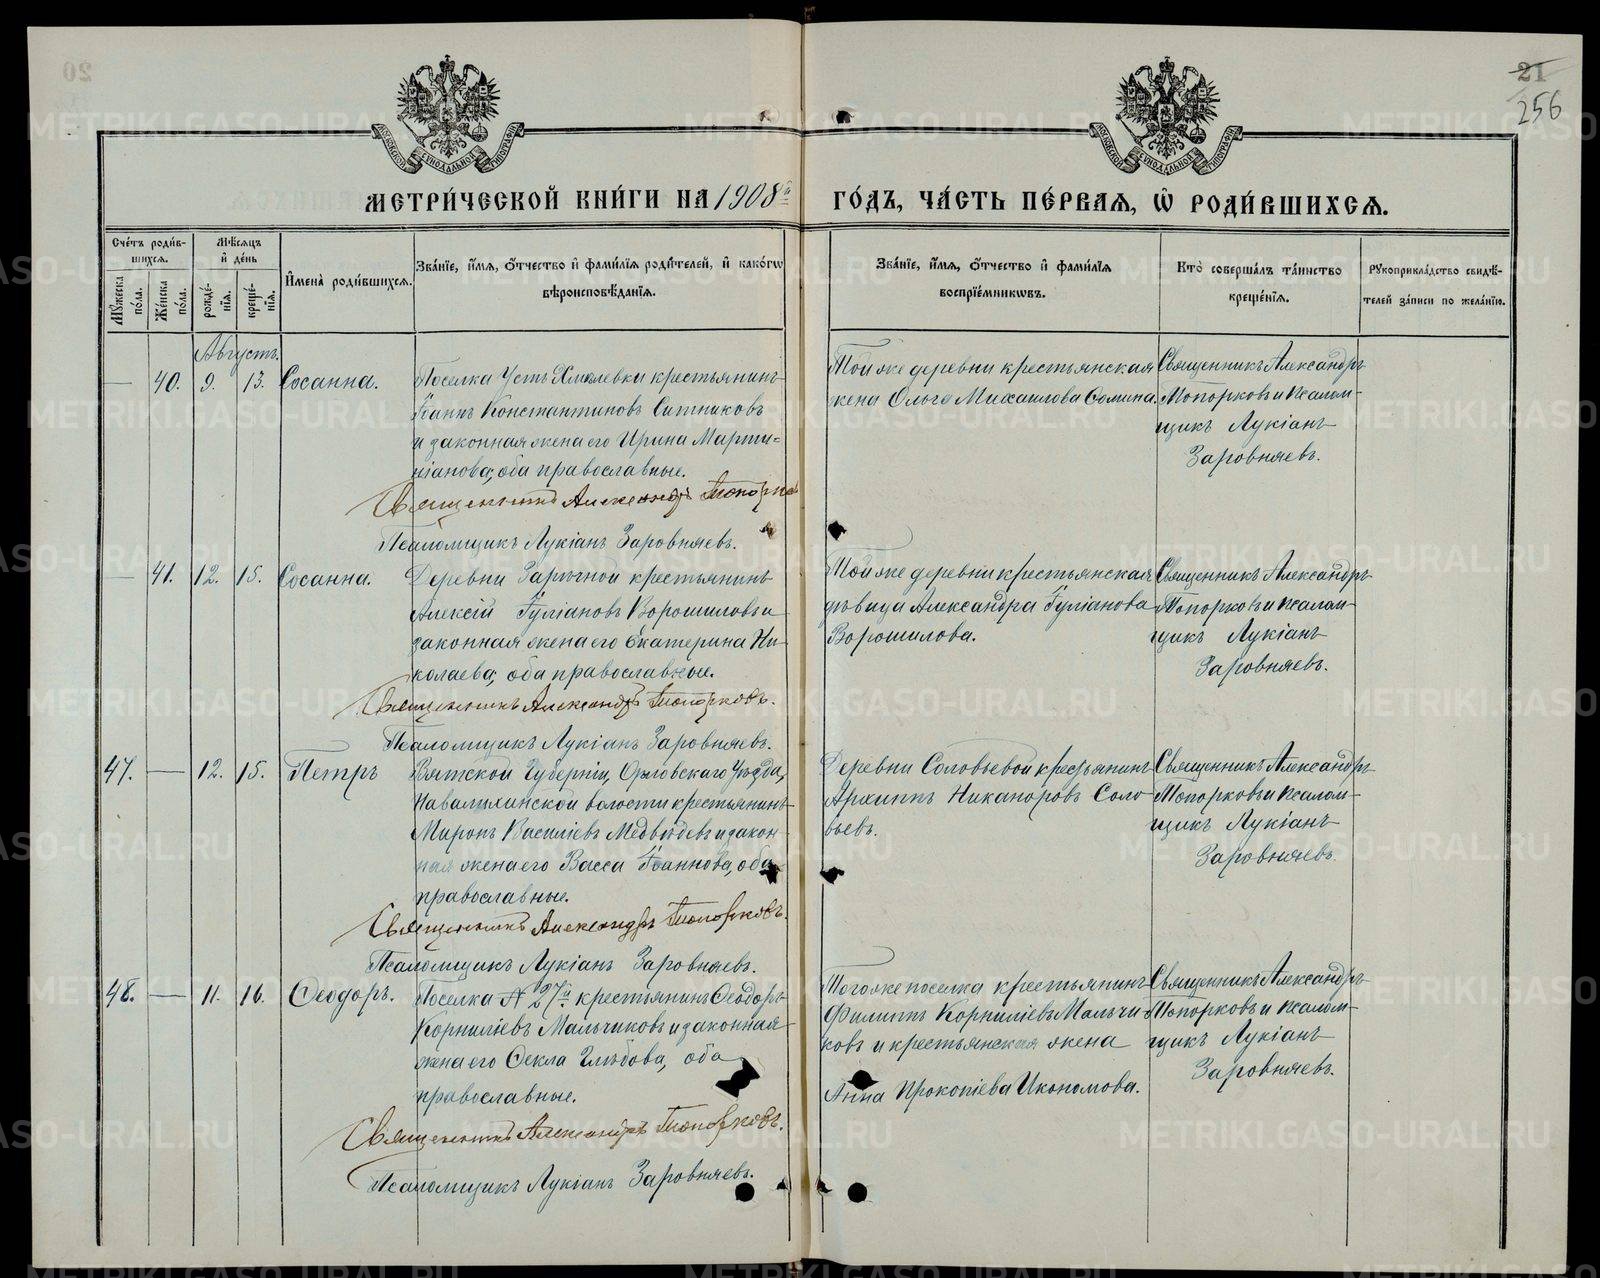 21
256
МЕТРИ́ЧЕСКОЙ КНИ́ГИ НА 1908й ГО́ДЪ, ЧА́СТЬ ПЕ́РВАЯ, Ѡ҆ РОДИ́ВШИХСѦ.
Сче́тъ роди́вшихсѧ.
Мꙋ́жеска по́ла.
Же́нска по́ла.
Мѣ́сяцъ и҆ де́нь
рожде́нїѧ.
креще́нїѧ.
И҆мена̀ роди́вшихсѧ.
Зва́нїе, и҆́мѧ, о҆́тчество и҆ фами́лїѧ роди́телей, и҆ како́гѡ
вѣроисповѣ́данїѧ.
Зва́нїе, и҆́мѧ, о҆́тчество и҆ фами́лїѧ
воспрїе́мникѡвъ.
Кто̀ соверша́лъ та́инство
креще́нїѧ.
Рꙋкоприкла́дство свидѣ́-
телей за́писи по жела́нїю.
Августъ.
— 40. 9. 13. Сосанна.
Поселка Усть Хмелевки крестьянинъ
Іоаннъ Константиновъ Ситниковъ
и законная жена его Ирина Марти=
ніанова, оба православные.
Священникъ Александръ Топорков
Псаломщикъ Лукіанъ Заровняевъ.
Той же деревни крестьянская
жена Ольга Михаилова Сомина.
Священникъ Александръ
Топорковъ и псалом-
щикъ Лукіанъ
Заровняевъ.
— 41. 12. 15. Сосанна.
Деревни Заречной крестьянинъ
Алексій Іуліановъ Ворошиловъ и
законная жена его Екатерина Ни-
колаева, оба православные.
Священникъ Александръ Топорковъ.
Псаломщикъ Лукіанъ Заровняевъ.
Той же деревни крестьянская
дѣвица Александра Іуліанова
Ворошилова.
Священникъ Александръ
Топорковъ и псалом-
щикъ Лукіанъ
Заровняевъ.
47. — 12. 15. Петръ
Вятской Губерніи, Орловскаго Уѣзда,
волости крестьянинъ
Миронъ Василіевъ Медвѣдевъ и закон-
ная жена его Васса Іоаннова, оба
православные.
Священникъ Александръ Топорковъ.
Псаломщикъ Лукіанъ Заровняевъ.
Деревни Соловьевой крестьянинъ
Архиппъ Никаноровъ Соло-
вьевъ.
Священникъ Александръ
Топорковъ и псалом-
щикъ Лукіанъ
Заровняевъ.
48. — 11. 16. Ѳеодоръ.
Поселка № 27й крестьянинъ Ѳеодоръ
Корниліевъ Мальчиковъ и законная
жена его Ѳекла Глѣбова, оба
православные.
Священникъ Александръ Топорковъ.
Псаломщикъ Лукіанъ Заровняевъ.
Того же поселка крестьянинъ
Филиппъ Корниліевъ Мальчи-
ковъ и крестьянская жена
Анна Прокопіева Икономова.
Священникъ Александръ
Топорковъ и псалом-
щикъ Лукіанъ
Заровняевъ.